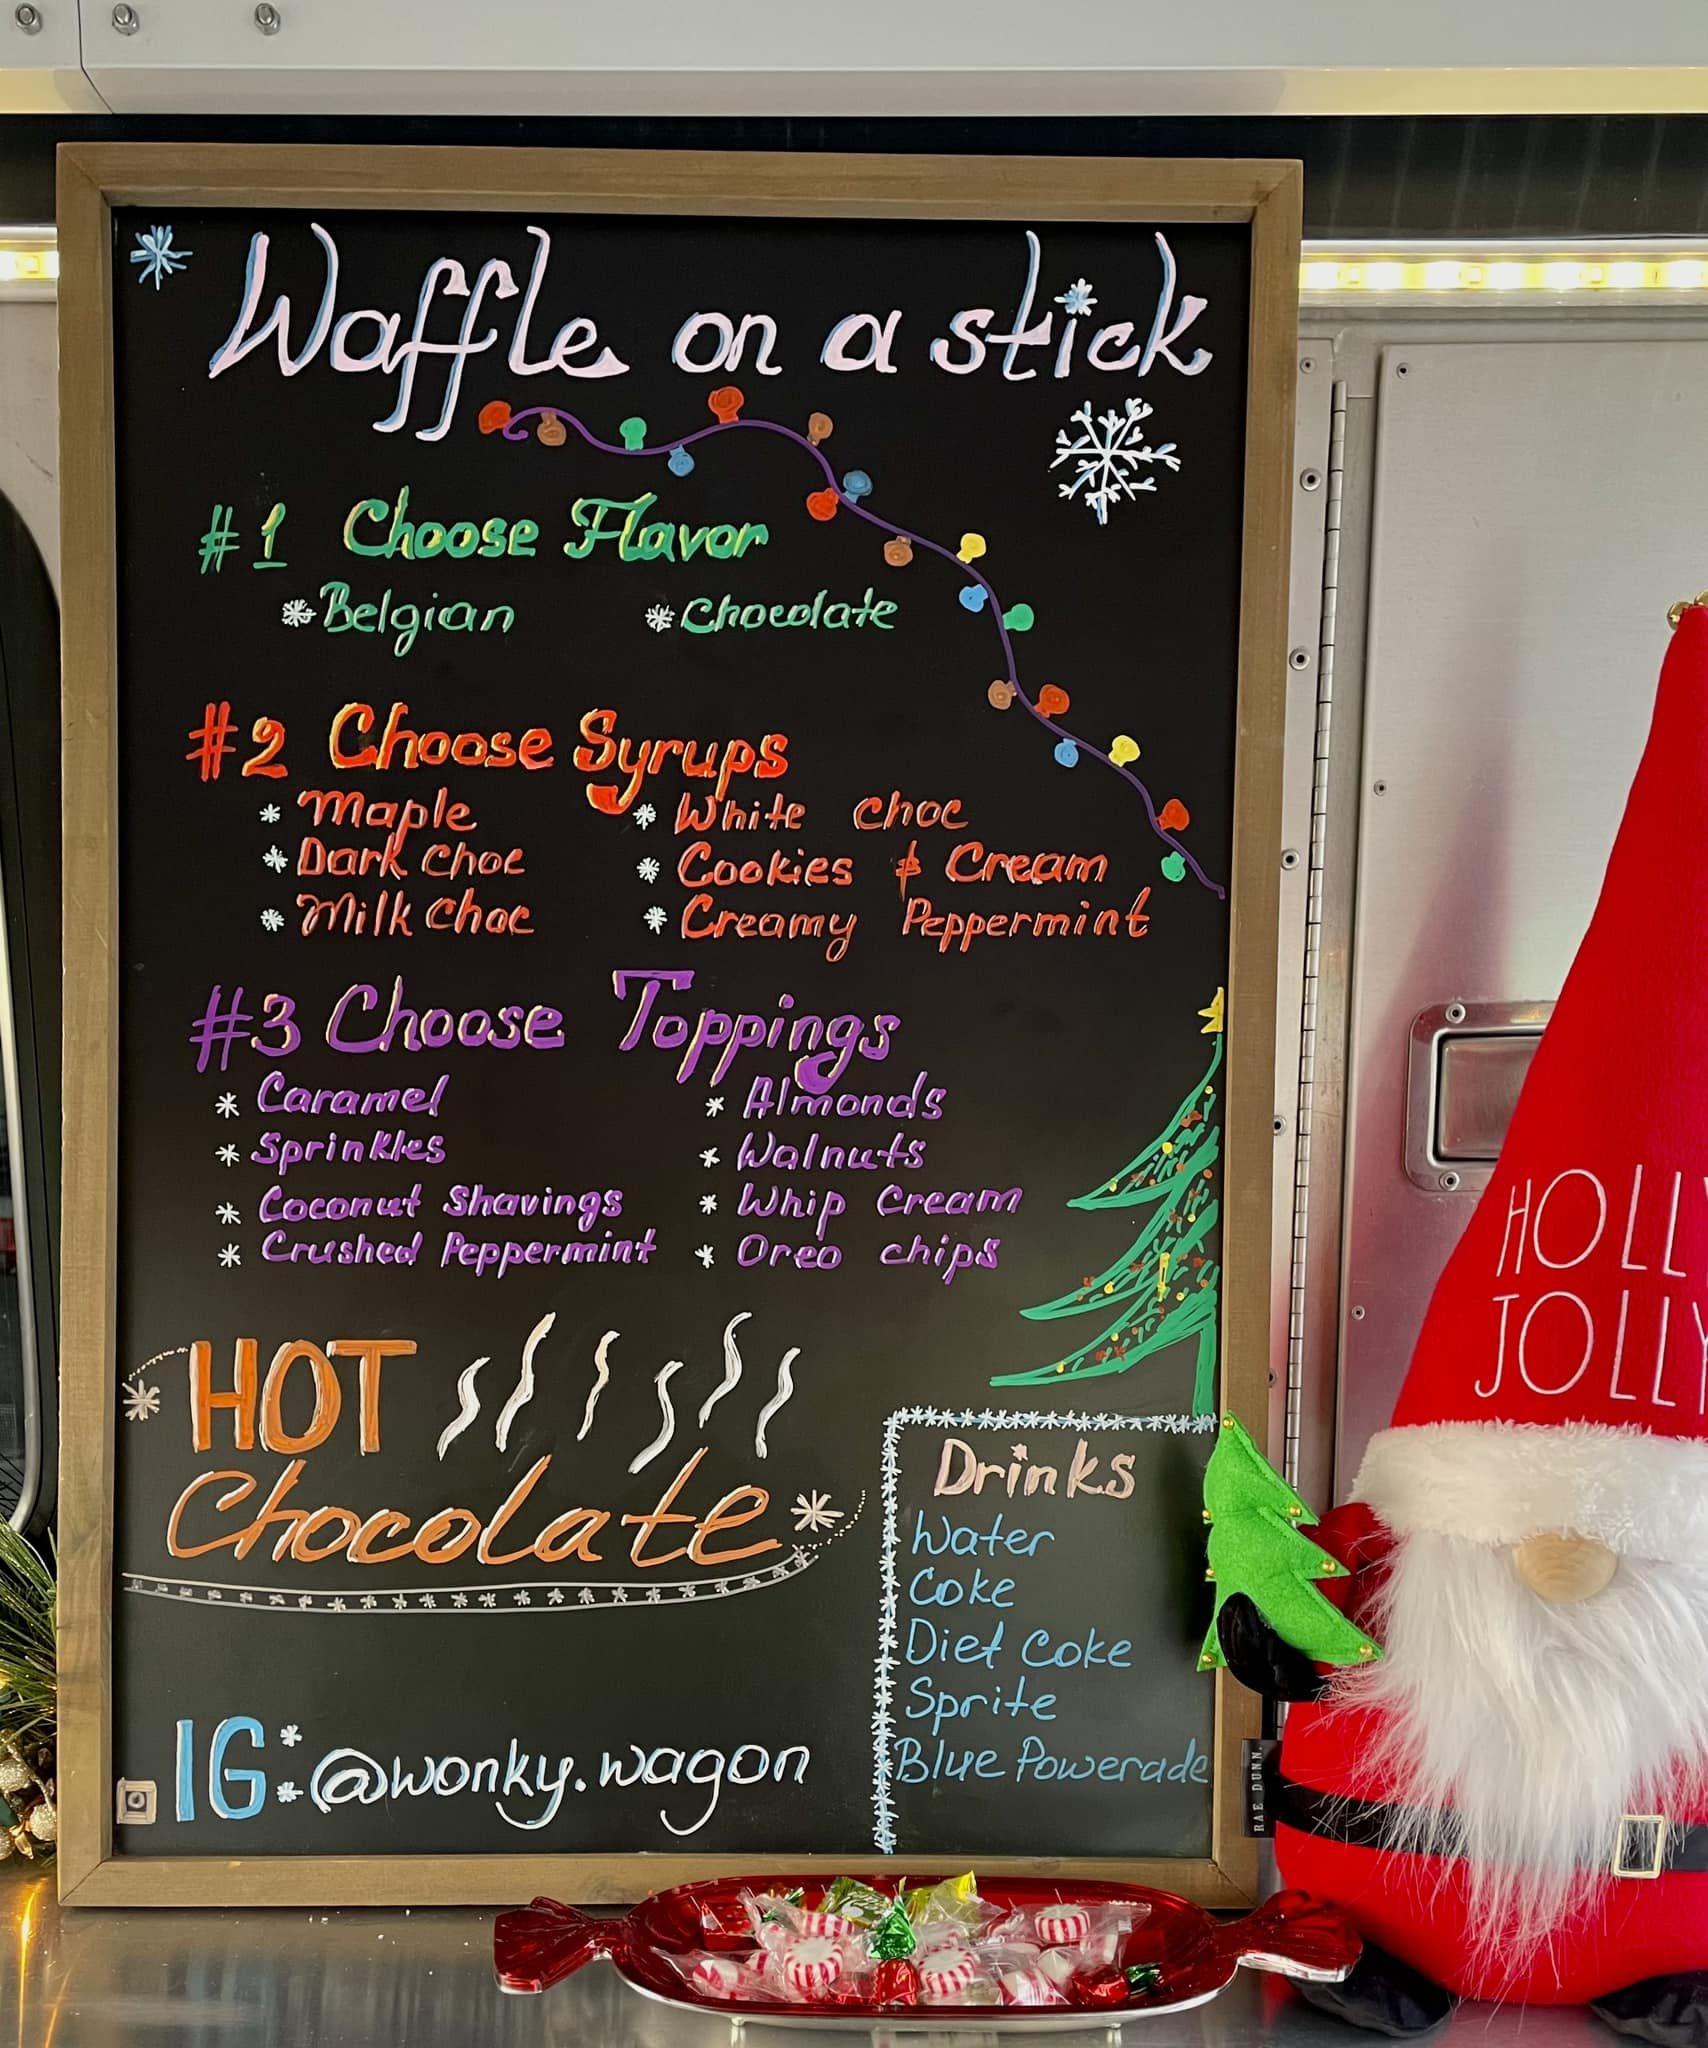 Waffle on a stick
#1 Choose Flavor
Belgian
Chocolate
#2 Choose Syrups
Maple
White choc
Dark choc
Cookies & Cream
Milk choc
Creamy Peppermint
#3 Choose Toppings
Caramel
Almonds
Sprinkles
Walnuts
Coconut Shavings
Whip cream
Crushed Peppermint
Oreo chips
HOT
Chocolate
Drinks
Water
Coke
Diet Coke
Sprite
Blue Powerade
IG: @wonky.wagon
HOLLY
JOLLY
RAE DUNN.